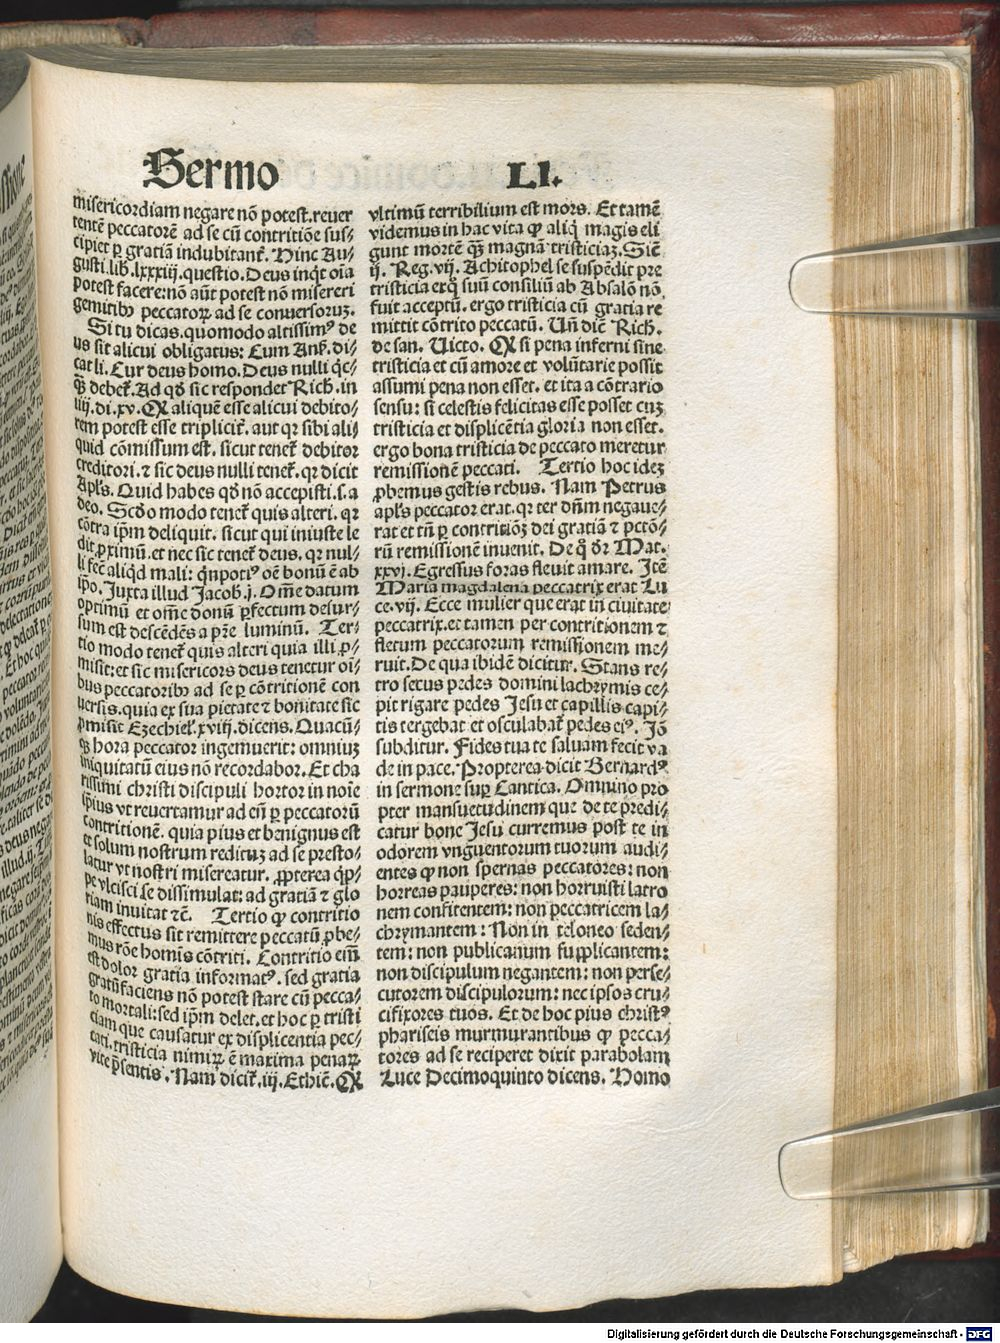 Sermo LI.
misericordiam negare nõ potest.reuer
tentẽ peccatorẽ ad se cũ contritiõe sus⸗
cipiet ꝑ gratiã indubitanť. Hinc Au⸗
gusti.lib.lxxxiij.questio.Deus inqͭ oĩa
potest facere:nõ aũt potest nõ misereri
gemitibꝰ peccatoꝝ ad se conuersoruꝫ.
Si tu dicas.quomodo altissimꝰ de
us sit alicui obligatus: Cum Anß. di⸗
cat li. Cur deus homo. Deus nulli qͥc⸗
qͣȝ debeť. Ad qḋ sic respondet Rich. in
iiij.di.xv. Qꝫ aliquẽ esse alicui debito⸗
rem potest esse tripliciť. aut qꝛ sibi ali⸗
quid cõmissum est. sicut teneť debitor
creditori. ⁊ sic deus nulli teneť. qꝛ dicit
Apl's. Quid habes qḋ nõ accepisti. s. a
deo. Scḋo modo teneť quis alteri. qꝛ
cõtra ip̃m deliquit. sicut qui iniuste le
dit ꝓximũ. et nec sic teneť deus. qꝛ nul⸗
li fec̃ aliqͥd mali: qͥnpotiꝰ oẽ bonũ ẽ ab
ip̃o. Juxta illud Jacob. j. Om̃e datum
optimũ et om̃e donũ ꝑfectum desur⸗
sum est descẽdẽs a pr̃e luminũ. Ter⸗
tio modo teneť quis alteri quia illi ꝓ⸗
misit: et sic misericors deus tenetur oĩ⸗
bus peccatoribꝰ ad se ꝑ cõtritionẽ con
uersis. quia ex sua pietate ⁊ bonitate sic
ꝓmisit Ezechieľ. xviij. dicens. Quacũ⸗
qȝ hora peccator ingemuerit: omniuꝫ
iniquitatũ eius nõ recordabor. Et cha
rissimi christi discipuli hortor in noĩe
ip̃ius vt reuertamur ad eũ ꝑ peccatorũ
contritionẽ. quia pius et benignus est
et solum nostrum redituꝫ ad se presto⸗
latur vt nostri misereatur. ꝓpterea qͥp⸗
pe vlcisci se dissimulat: ad gratiã ⁊ glo
riam inuitat ⁊c̃. Tertio ꝙ contritio
nis effectus sit remittere peccatũ ꝓbe⸗
mus rõe homĩs cõtriti. Contritio eĩm
est dolor gratia informatꝰ. sed gratia
gratũ faciens nõ potest stare cũ pecca⸗
to mortali: sed ip̃m delet. et hoc ꝑ tristi
ciam que causatur ex displicentia pec⸗
cati. tristicia nimiꝝ ẽ maxima penaꝝ
vite p̃sentis. Nam diciť. iij. Ethic̃. Qꝫ
vltimũ terribilium est mors. Et tamẽ
videmus in hac vita ꝙ aliqͥ magis eli
gunt mortẽ qͣȝ magnã tristiciaꝫ. Sic̃
ij. Reg. vij. Achitophel se suspẽdit pre
tristicia exq̃ suũ consiliũ ab Absalõ nõ
fuit acceptũ. ergo tristicia cũ gratia re
mittit cõtrito peccatũ. Uñ dic̃ Rich.
de san. Uicto. Qꝫ si pena inferni sine
tristicia et cũ amore et volũtarie possit
assumi pena non esset. et ita a cõtrario
sensu: si celestis felicitas esse posset cuꝫ
tristicia et displicẽtia gloria non esset.
ergo bona tristicia de peccato meretur
remissionẽ peccati. Tertio hoc ideꝫ
ꝓbemus gestis rebus. Nam Petrus
apl's peccator erat. qꝛ ter dñm negaue⸗
rat et tñ ꝑ contritiõꝫ dei gratiã ⁊ pctõ⸗
rũ remissionẽ inuenit. De qͦ dꝛ Mat.
xxvj. Egressus foras fleuit amare. Itẽ
Maria magdalena peccatrix erat Lu
ce. vij. Ecce mulier que erat in ciuitate
peccatrix. et tamen per contritionem ⁊
fletum peccatorum remissionem me⸗
ruit. De qua ibidẽ dicitur. Stans re⸗
tro secus pedes domini lachrymis ce⸗
pit rigare pedes Jesu et capillis capi⸗
tis tergebat et osculabať pedes eiꝰ. Jõ
subditur. Fides tua te saluam fecit va
de in pace. Propterea dicit Bernardꝰ
in sermone suꝑ Cantica. Omnino pro
pter mansuetudinem que de te predi⸗
catur bone Jesu curremus post te in
odorem vnguentorum tuorum audi⸗
entes ꝙ non spernas peccatores: non
horreas pauperes: non horruisti latro
nem confitentem: non peccatricem la⸗
chrymantem: Non in teloneo seden⸗
tem: non publicanum supplicantem:
non discipulum negantem: non perse⸗
cutorem discipulorum: nec ipsos cru⸗
cifixores tuos. Et de hoc pius christꝰ
phariseis murmurantibus ꝙ pecca⸗
tores ad se reciperet dixit parabolam
Luce Decimoquinto dicens. Homo
Digitalisierung gefördert durch die Deutsche Forschungsgemeinschaft - DFG